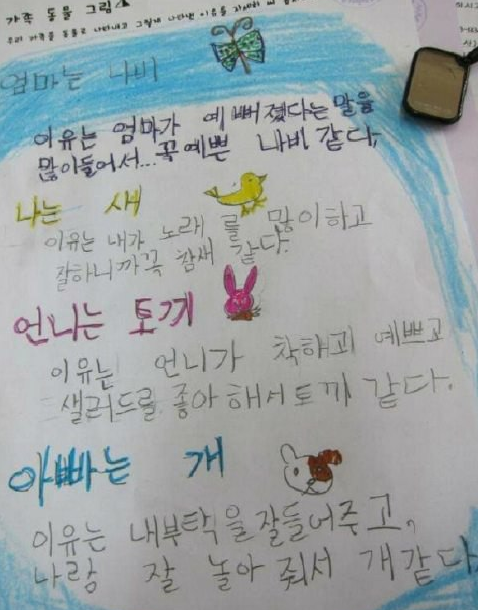 가족 동물 그림
우리 가족을 동물로 나타내고 그렇게 나타낸 이유를 자세히 써
엄마는 나비
이유는 엄마가 예뻐졌다는 말을
많이들어서... 꼭 예쁜 나비 같다,
나는 새
이유는 내가 노래를 많이하고
잘하니까꼭 참새 같다.
언니는 토끼
이유는 언니가 착하고 예쁘고
샐러드를 좋아해서 토끼 같다.
아빠는 개
이유는 내부탁을잘들어주고,
나랑 잘 놀아 줘서 개같다